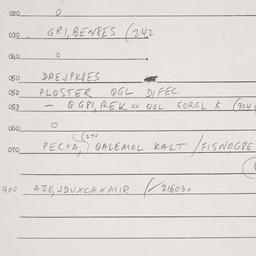 020 0
030. GRI,BENRES (242
040 0
050 DREJPKPES
052 PLOSTER QGL DIFEC
053 - QGPI,REK QGL GORGL (904
060 0
(290
070 PECTA, QALEMOL KALT / FISNOGPE
900 AZE,JDUXCAXMIR (/21603